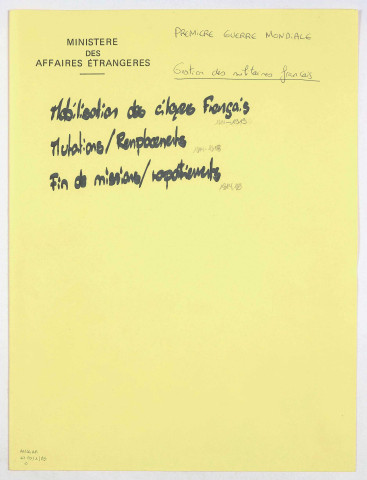 MINISTERE
DES
AFFAIRES ÉTRANGERES
PREMIERE GUERRE MONDIALE
Gestion des militaires français
Mobilisation des citoyens Français
Mutations/Remplacements
Fin de missions/rapatriements